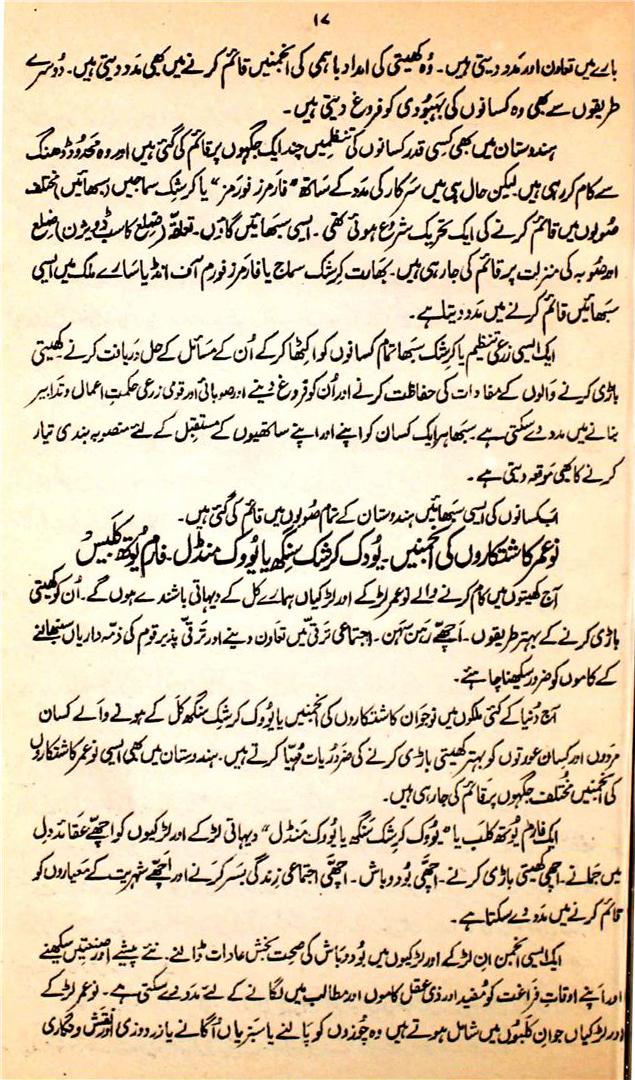 ۱۷
بارے میں تعاون اور مدد دیتی ہیں۔ وہ کھیتی کی امداد باہمی کی انجمنیں قائم کرنے میں بھی مدد دیتی ہیں۔ دوسرے
طریقوں سے بھی وہ کسانوں کی بہبودی کو فروغ دیتی ہیں۔
ہندوستان میں بھی کسی قدر کسانوں کی تنظیمیں چند ایک جگہوں پر قائم کی گئی ہیں اور وہ محدود ڈھنگ
سے کام کر رہی ہیں۔ لیکن حال ہی میں سرکار کی مدد کے ساتھ "فارمرز فورمز" یا کرشک سماجیں (سبھائیں) مختلف
صوبوں میں قائم کرنے کی ایک تحریک شروع ہوئی تھی۔ ایسی سبھائیں گاؤں۔ تعلقہ (ضلع کا سب ڈویژن) ضلع
اور صوبہ کی منزلت پر قائم کی جا رہی ہیں۔ بھارت کرشک سماج یا فارمرز فورم آف انڈیا سارے ملک میں ایسی
سبھائیں قائم کرنے میں مدد دیتا ہے۔
ایک ایسی زرعی تنظیم یا کرشک سبھا تمام کسانوں کو اکٹھا کر کے اُن کے مسائل کے حل دریافت کرنے کھیتی
باڑی کرنے والوں کے مفادات کی حفاظت کرنے اور اُن کو فروغ دینے اور صوبائی اور قومی زرعی حکمتِ اعمال و تدابیر
بنانے میں مدد دے سکتی ہے۔ سبھا ہر ایک کسان کو اپنے اور اپنے ساتھیوں کے مستقبل کے لئے منصوبہ بندی تیار
کرنے کا بھی موقعہ دیتی ہے۔
اب کسانوں کی ایسی سبھائیں ہندوستان کے تمام صوبوں میں قائم کی گئی ہیں۔
نو عمر کاشتکاروں کی انجمنیں۔ یووک کرشک سنگھ یا یووک منڈل۔ فارم یوتھ کلبیس
آج کھیتوں میں کام کرنے والے نو عمر لڑکے اور لڑکیاں ہمارے کل کے دیہاتی باشندے ہوں گے۔ اُن کو کھیتی
باڑی کرنے کے بہتر طریقوں۔ اچھے رہن سہن۔ اجتماعی ترقی میں تعاون دینے اور ترقی پذیر قوم کی ذمہ داریاں سنبھالنے
کے کاموں کو ضرور سیکھنا چاہئے۔
آج دُنیا کے کتنی ملکوں میں نوجوان کاشتکاروں کی انجمنیں یا یووک کرشک سنگھ کل کے ہونے والے کسان
مردوں اور کسان عورتوں کو بہتر کھیتی باڑی کرنے کی ضروریات مہیّا کرتے ہیں۔ ہندوستان میں بھی ایسی نو عمر کاشتکاروں
کی انجمنیں مختلف جگہوں پر قائم کی جا رہی ہیں۔
ایک فارم یوتھ کلب یا "یووک کرشک سنگھ یا یووک منڈل" دیہاتی لڑکے اور لڑکیوں کو اچھے عقائد دل
میں جمانے۔ اچھی کھیتی باڑی کرنے۔ اچھی بود و باش۔ اچھی اجتماعی زندگی بسر کرنے اور اچھے شہریت کے معیاروں کو
قائم کرنے میں مدد دے سکتا ہے۔
ایک ایسی انجمن ان لڑکے اور لڑکیوں میں بود و باش کی صحت بخش عادات ڈالنے۔ نئے پیشے اور صنعتیں سیکھنے
اور اپنے اوقاتِ فراغت کو مفید اور ذی عقل کاموں اور مطالب میں لگانے کے لئے مدد دے سکتی ہے۔ نو عمر لڑکے
اور لڑکیاں جو ان کلبوں میں شامل ہوتے ہیں وہ چوزوں کو پالنے یا سبزیاں اُگانے یا زردوزی اور نقش و نگاری